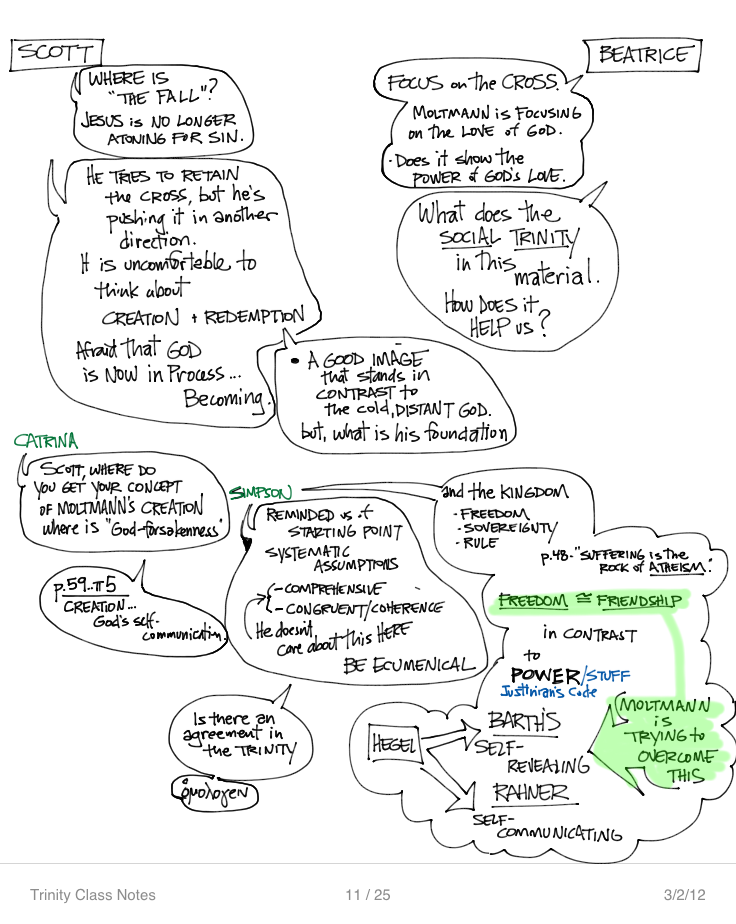 SCOTT
WHERE IS
"THE FALL"?
JESUS is NO LONGER
ATONING FOR SIN.
HE TRIES TO RETAIN
the CROSS, but he's
pushing it in another
direction.
It is uncomfortable to
think about
CREATION + REDEMPTION
Afraid that GOD
is NOW in Process...
Becoming.
BEATRICE
FOCUS on the CROSS.
MOLTMANN is FOCUSING
on the LOVE of GOD.
· Does it show the
POWER of GOD'S LOVE.
What does the
SOCIAL TRINITY
in this
material.
HOW DOES it
HELP US?
• A GOOD IMAGE
that stands in
CONTRAST to
the cold, DISTANT GOD.
but, what is his foundation
CATRINA
SCOTT, WHERE DO
YOU GET YOUR CONCEPT
OF MOLTMANN'S CREATION
where is "God-forsakenness"
p.59..π5
CREATION...
God's self-
communication.
SIMPSON
REMINDED us of
STARTING POINT
SYSTEMATIC
ASSUMPTIONS
- COMPREHENSIVE
- CONGRUENT/COHERENCE
He doesn't
care about this HERE
BE ECUMENICAL
Is there an
agreement in
the TRINITY
ὁμολογεν
and the KINGDOM
- FREEDOM
- SOVEREIGNTY
- RULE
p.48- "SUFFERING is the
ROCK of ATHEISM."
FREEDOM ≅ FRIENDSHIP
in CONTRAST
to
POWER/STUFF
Justinian's Code
HEGEL
BARTH'S
SELF-
REVEALING
RAHNER
SELF-
COMMUNICATING
MOLTMANN
is
TRYING to
OVERCOME
THIS
Trinity Class Notes
11 / 25
3/2/12